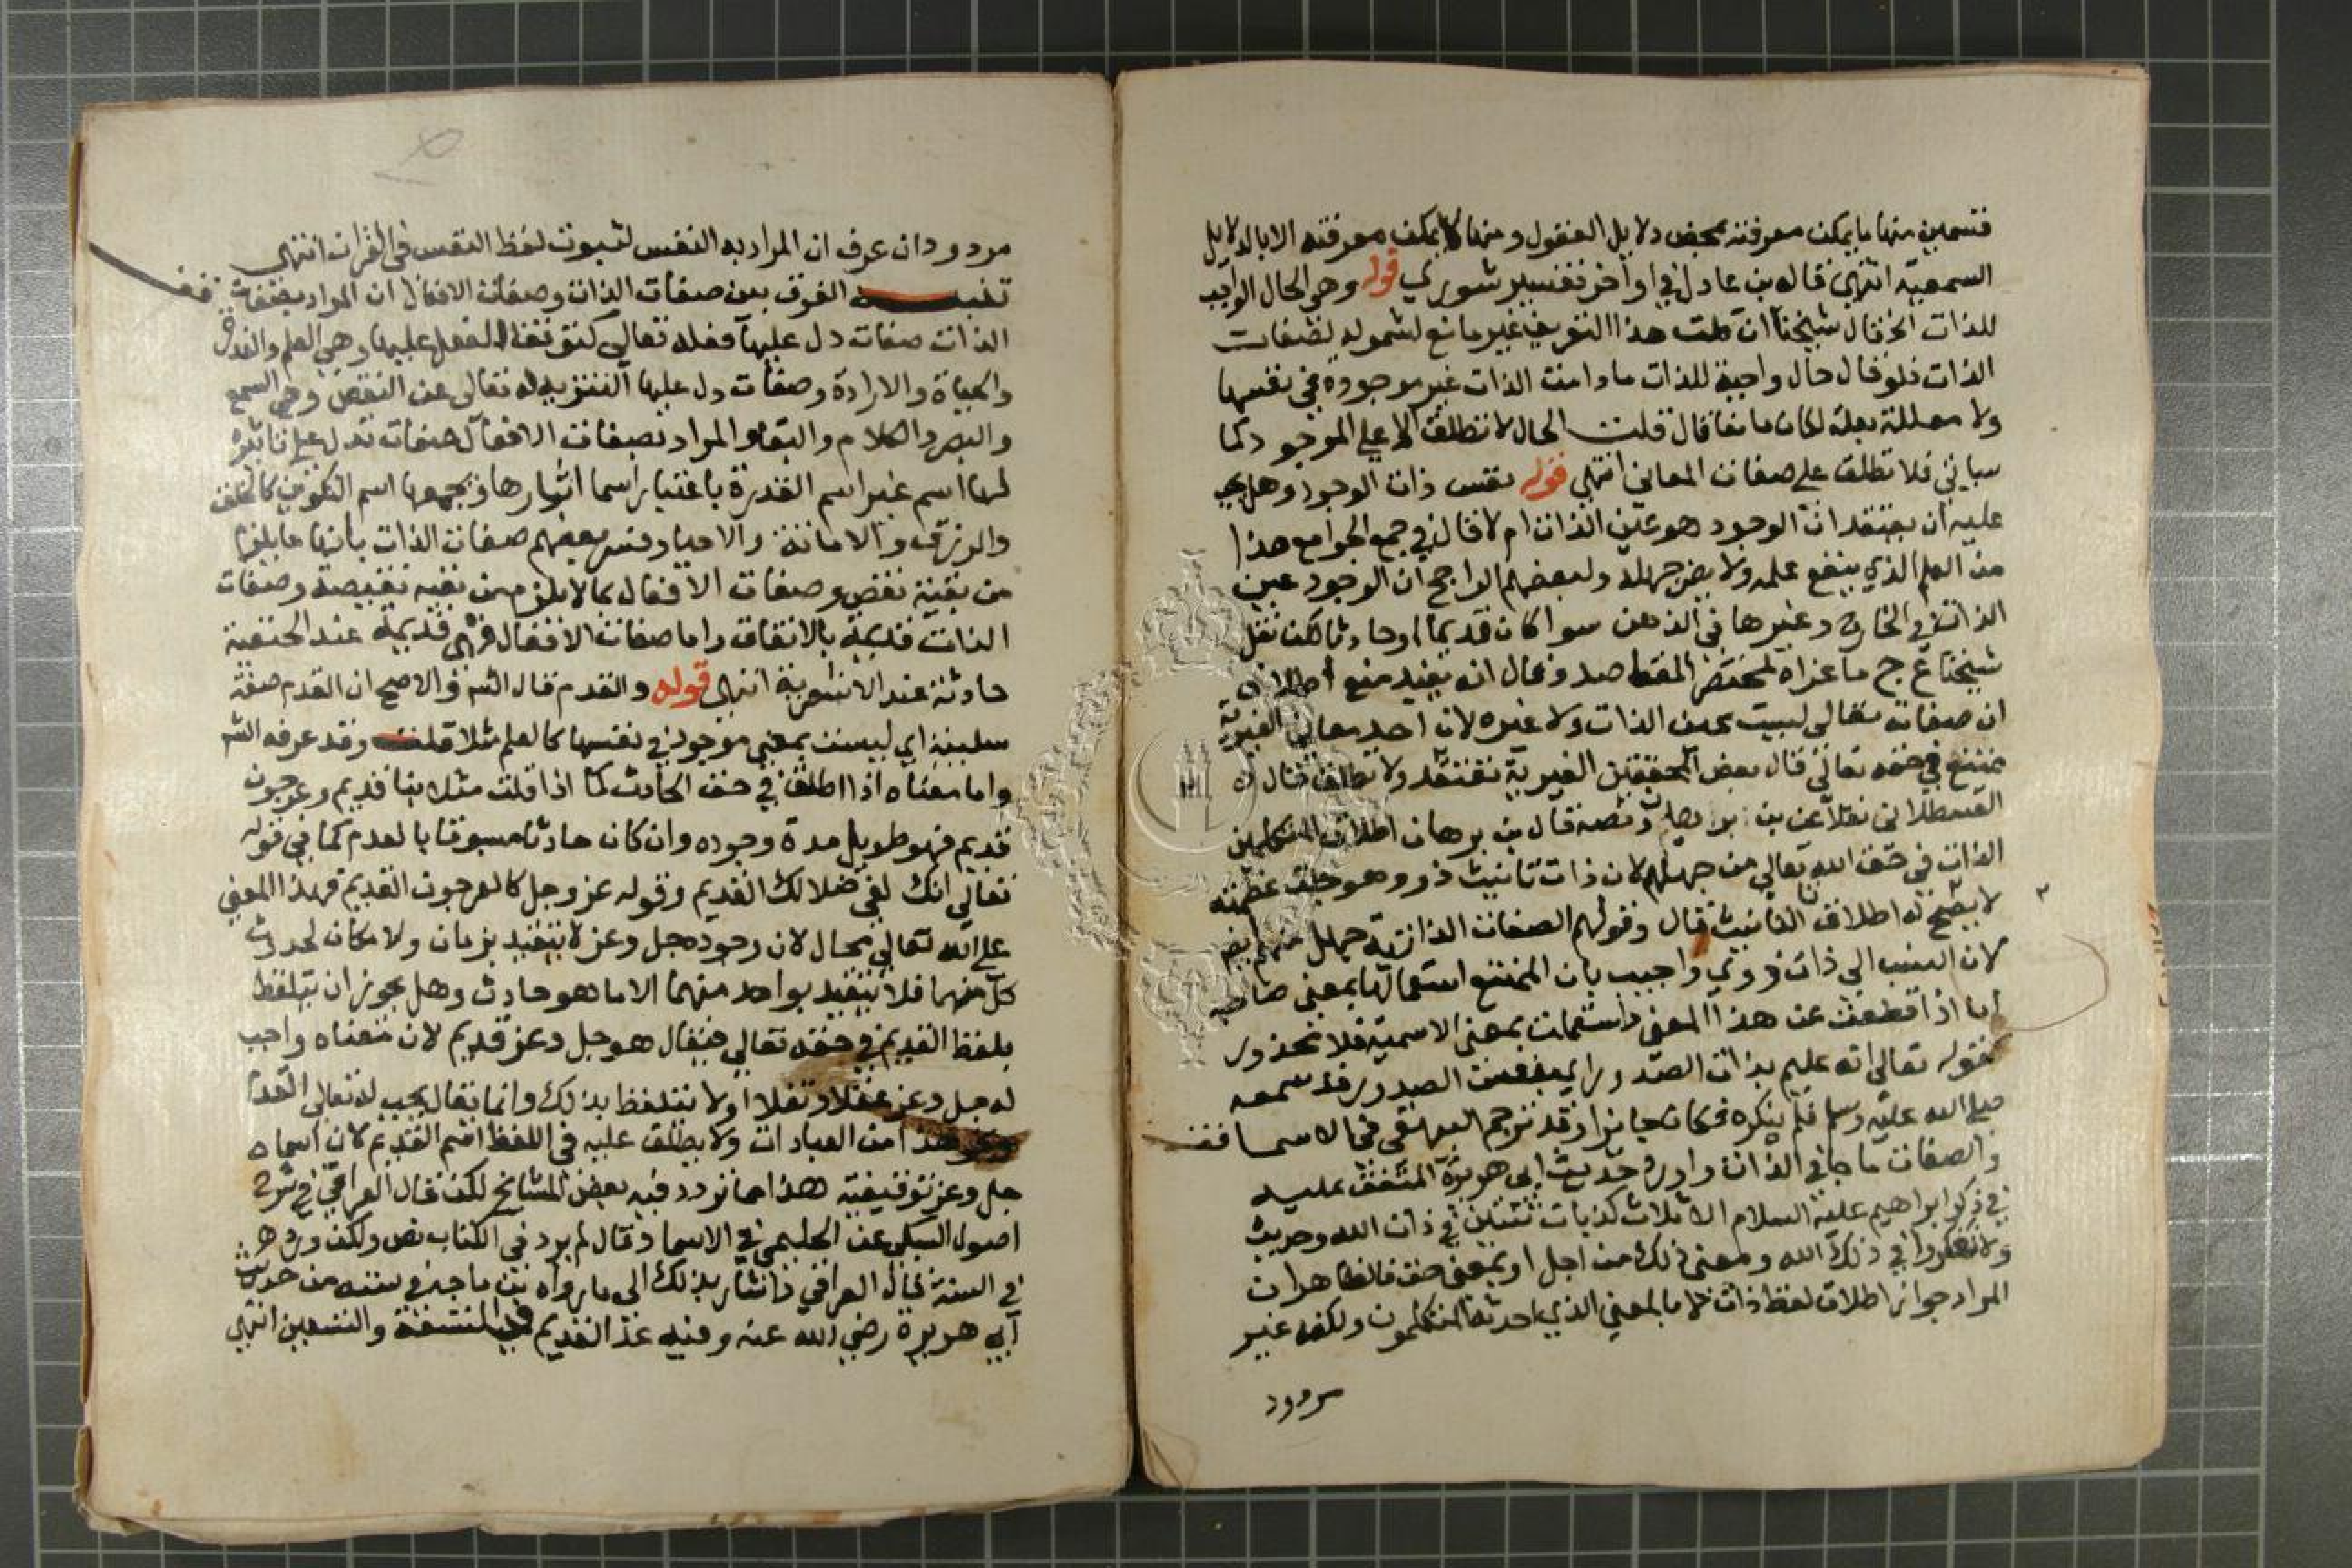 قسمين منها ما يمكن معرفته بمحض دلايل العقول ومنها لا يمكن معرفته الا بالدلايل
السمعية انتهى قاله بن عادل في اواخر تفسير شورى قوله وهي الحال الواجب
للذات الخ قال شيخنا ان قلت هذا التعريف غير مانع لشموله لصفات
الذات فلو قال حال واجبة للذات ما دامت الذات غير موجودة في نفسها
ولا معللة بعلة لكان مانعا قال قلت الحال لا تطلق الا على الموجود كما
سياتي فلا تطلق على صفات المعاني انتهى قوله نفس ذات الوجود وهل يجب
عليه ان يعتقد ان الوجود هو عين الذات ام لا قال في جمع الجوامع هذا
من العلم الذي ينفع علمه ولا يضر جهله ولبعضهم الراجح ان الوجود عين
الذات في الخارج وغيرها في الذهن سوا كان قديما او حادثا لكن نقل
شيخنا ع ج ما عزاه لمختصر المقاصد وقال انه يفيد منع اطلاق
ان صفاته تعالى ليست عين الذات ولا غيره لان احد معاني الغيرية
ممتنع في حقه تعالى قال بعض المحققين الغيرية تعتقد ولا تطلق قال
القسطلاني نقلا عن بن ونصه قال بن برهان اطلاق المتكلمين
الذات في حق الله تعالى من جهلهم لان ذات تانيث ذو وهو جلت عظمته
لا يصح له اطلاق التانيث قال وقولهم الصفات الذاتية جهل منهم ايضا
لان النسب الى ذات ذووي واجيب بان الممتنع استعمالها بمعنى صاحبه
اما اذا قطعت عن هذا المعنى واستعملت بمعنى الاسمية فلا محذور
كقوله تعالى انه عليم بذات الصدور اي بنفس الصدور قد سمعه
صلى الله عليه وسلم فلم ينكره فكان جايزا وقد ترجم البيهقي في الاسما قف
والصفات ما جا في الذات واورد حديث ابي هريرة المتفق عليه
في ذكر ابراهيم عليه السلام الا ثلاث كذبات ثنتين في ذات الله وحديث
ولا تفكروا في ذات الله ومعنى ذلك من اجل او بمعنى حق فالظاهر ان
المراد جواز اطلاق لفظ ذات لا بالمعنى الذي احدثه المتكلمون ولكنه غير
مردود
مردود ان عرف ان المراد به النفس لثبوت لفظ النفس في القران انتهى
تنبيه الفرق بين صفات الذات وصفات الافعال ان المراد بصفات قف
الذات صفات دل عليها فعله تعالى كتوقف الفعل عليها وهي العلم والقدرة
والحياة والارادة وصفات دل عليها التنزيه له تعالى عن النقص وهي السمع
والبصر والكلام والبقا والمراد بصفات الافعال صفات تدل على تاثير
لها اسم غير اسم القدرة باعتبار اسما اثارها ويجمعها اسم التكوين كالخلق
والرزق والاماتة والاحيا وفسر بعضهم صفات الذات بانها ما يلزم
من نفيه نقص وصفات الافعال بما لا يلزم من نفيه نقيصة وصفات
الذات قديمة بالاتفاق واما صفات الافعال فهي قديمة عند الحنفية
حادثة عند الاشعرية انتهى قوله والقدم قال الشه والاصح ان القدم صفة
سلبية اي ليست بمعنى موجود في نفسها كالعلم مثلا قلت وقد عرفه الشه
واما معناه اذا اطلق في حق الحادث كما اذا قلت مثلا بنا قديم وعرجون
قديم فهو طويل مدة وجوده وان كان حادثا مسبوقا بالعدم كما في قوله
تعالى انك لفي ضلالك القديم وقوله عز وجل كالعرجون القديم فهذا المعنى
على الله تعالى محال لان وجوده جل وعز لا يتقيد بزمان ولا مكان لحدوث
كل منهما فلا يتقيد بواحد منهما الا ما هو حادث وهل يجوز ان يتلفظ
بلفظ القديم في حقه تعالى فيقال هو جل وعز قديم لان معناه واجب
له جل وعز عقلا ونقلا او لا يتلفظ بذلك وانما يقال يجب له تعالى القدم
ونحو هذا من العبارات ولا يطلق عليه في اللفظ اسم القديم لان اسماه
جل وعز توقيفية هذا مما تردد فيه بعض المشايخ لكن قال العراقي في شرح
اصول السبكي عن الحليمي في الاسما وقال لم يرد في الكتاب نص ولكن ورد
في السنة قال العراقي واشار بذلك الى ما رواه بن ماجه في سننه من حديث
ابي هريرة رضي الله عنه وفيه عد القديم في التسعة والتسعين انتهى